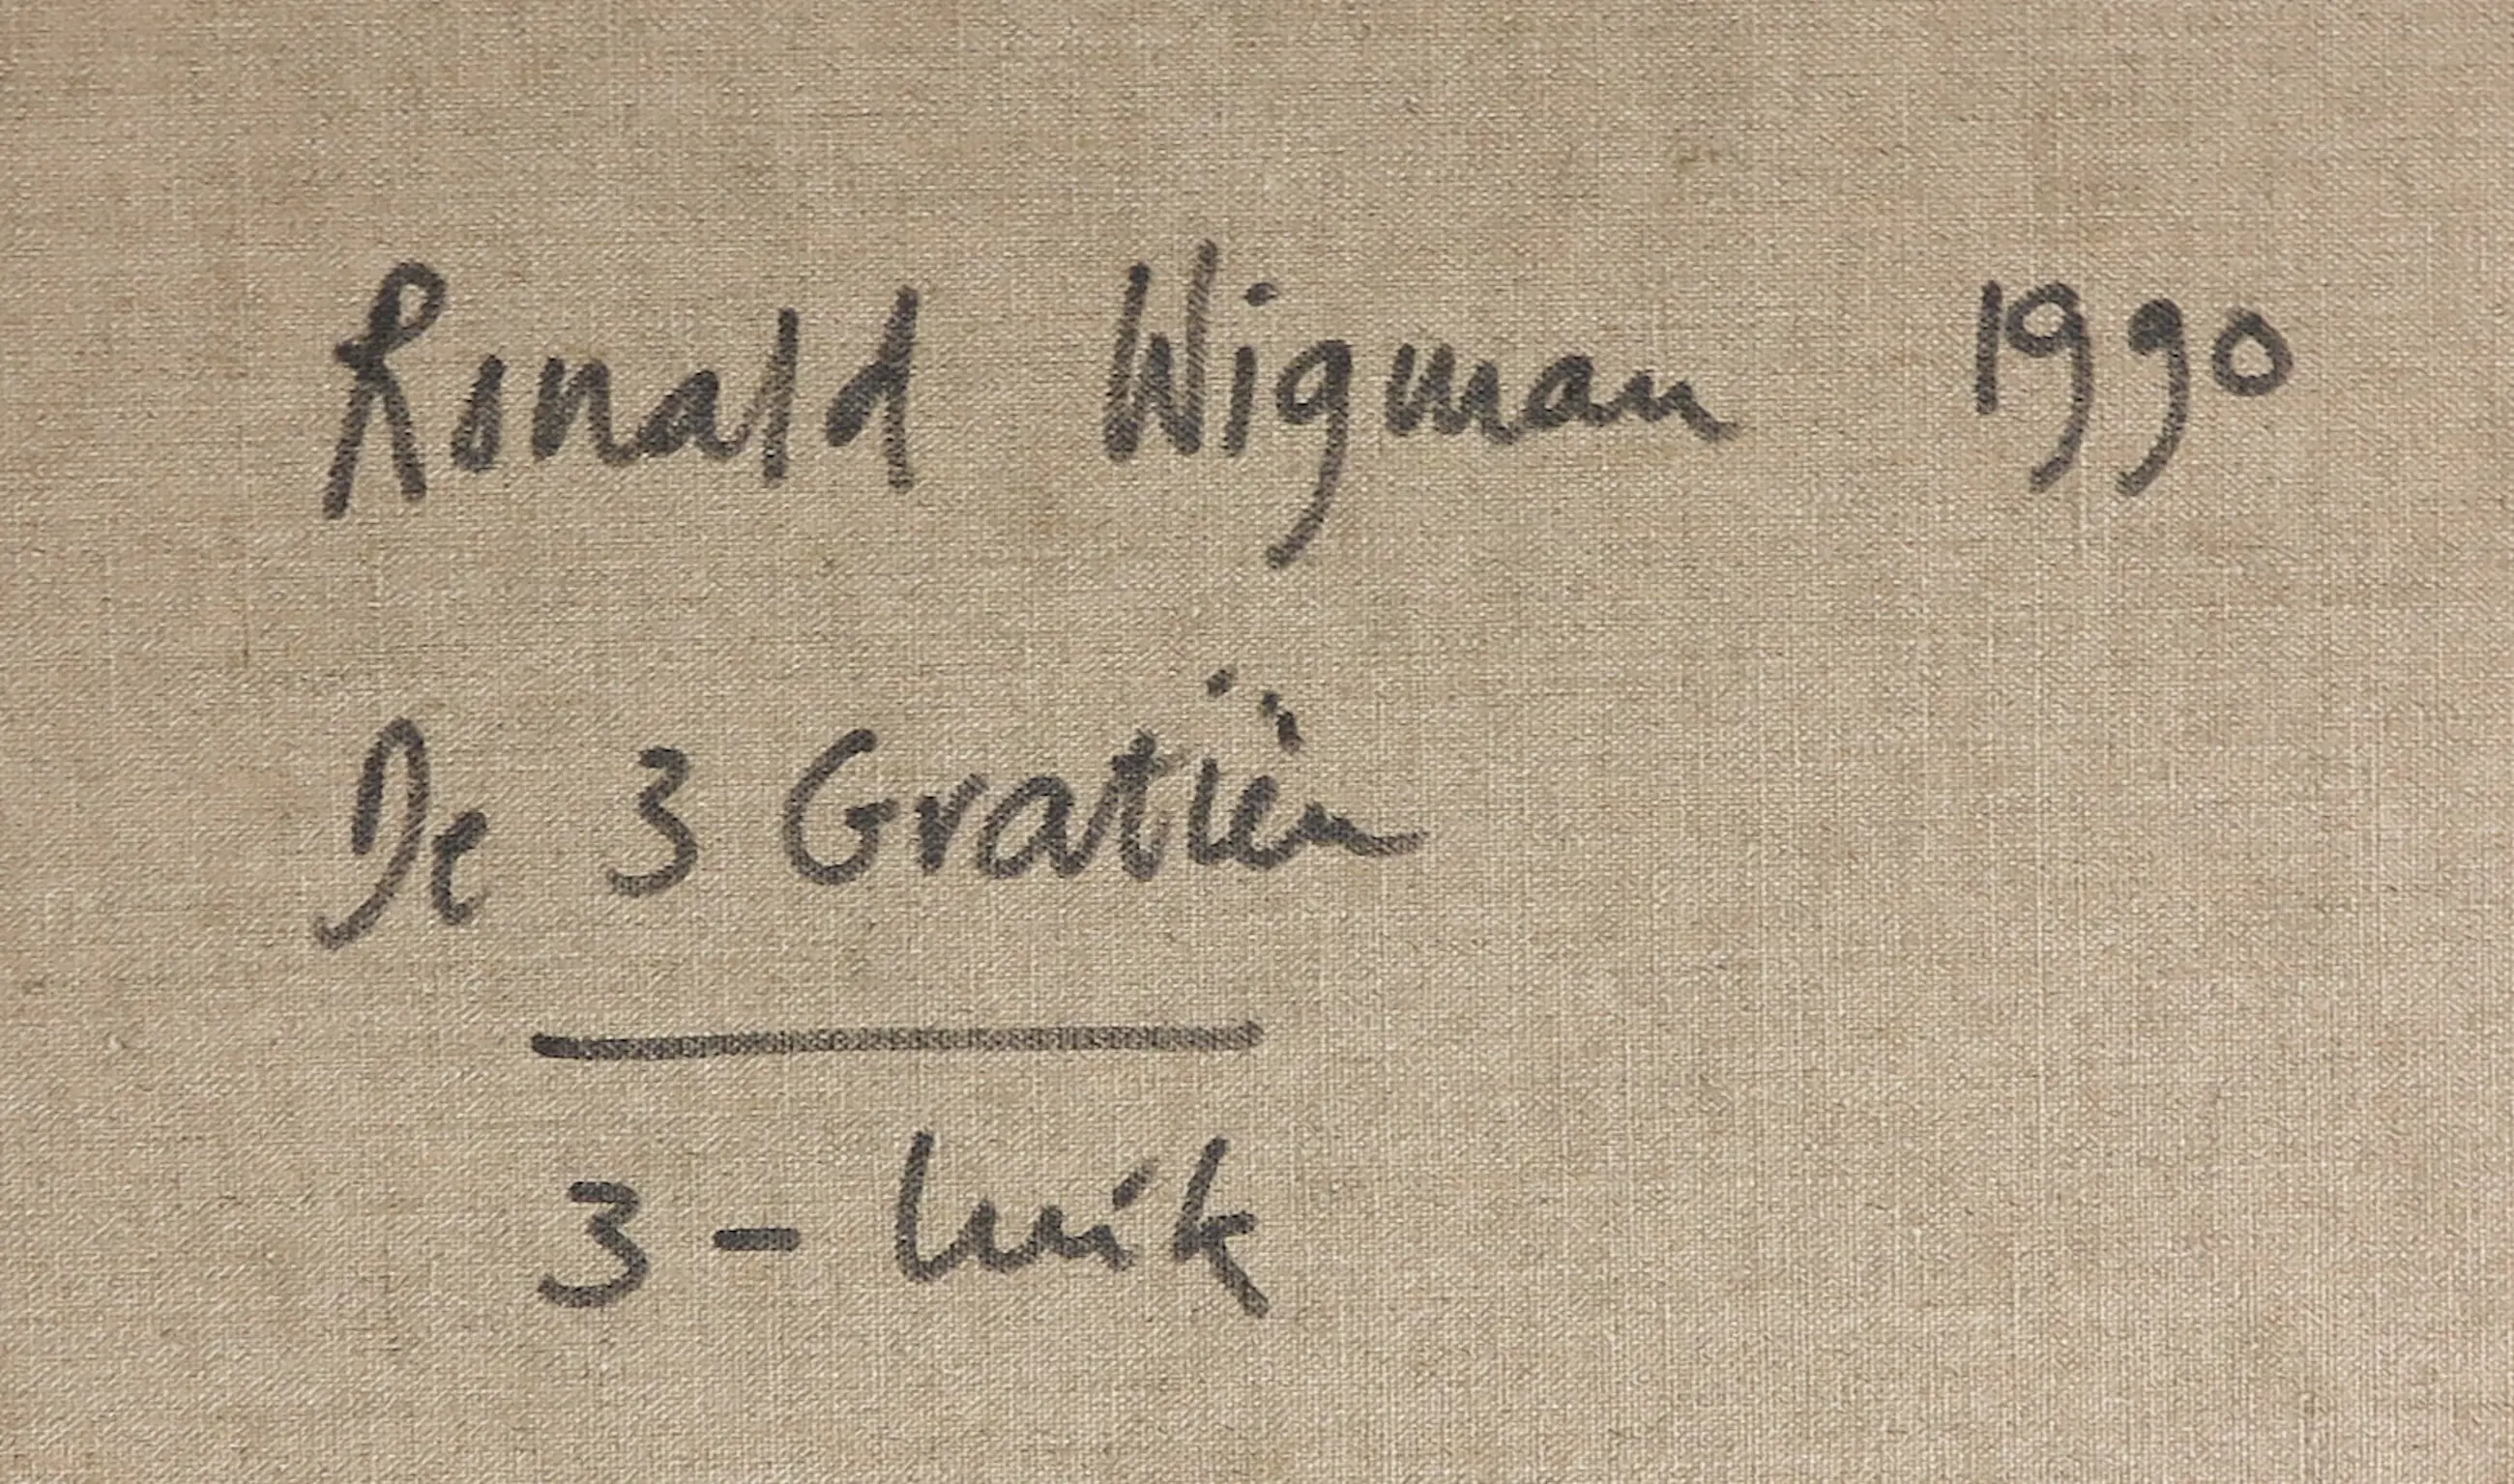 Ronald Wigman 1990
De 3 Gratiën
3 - luik